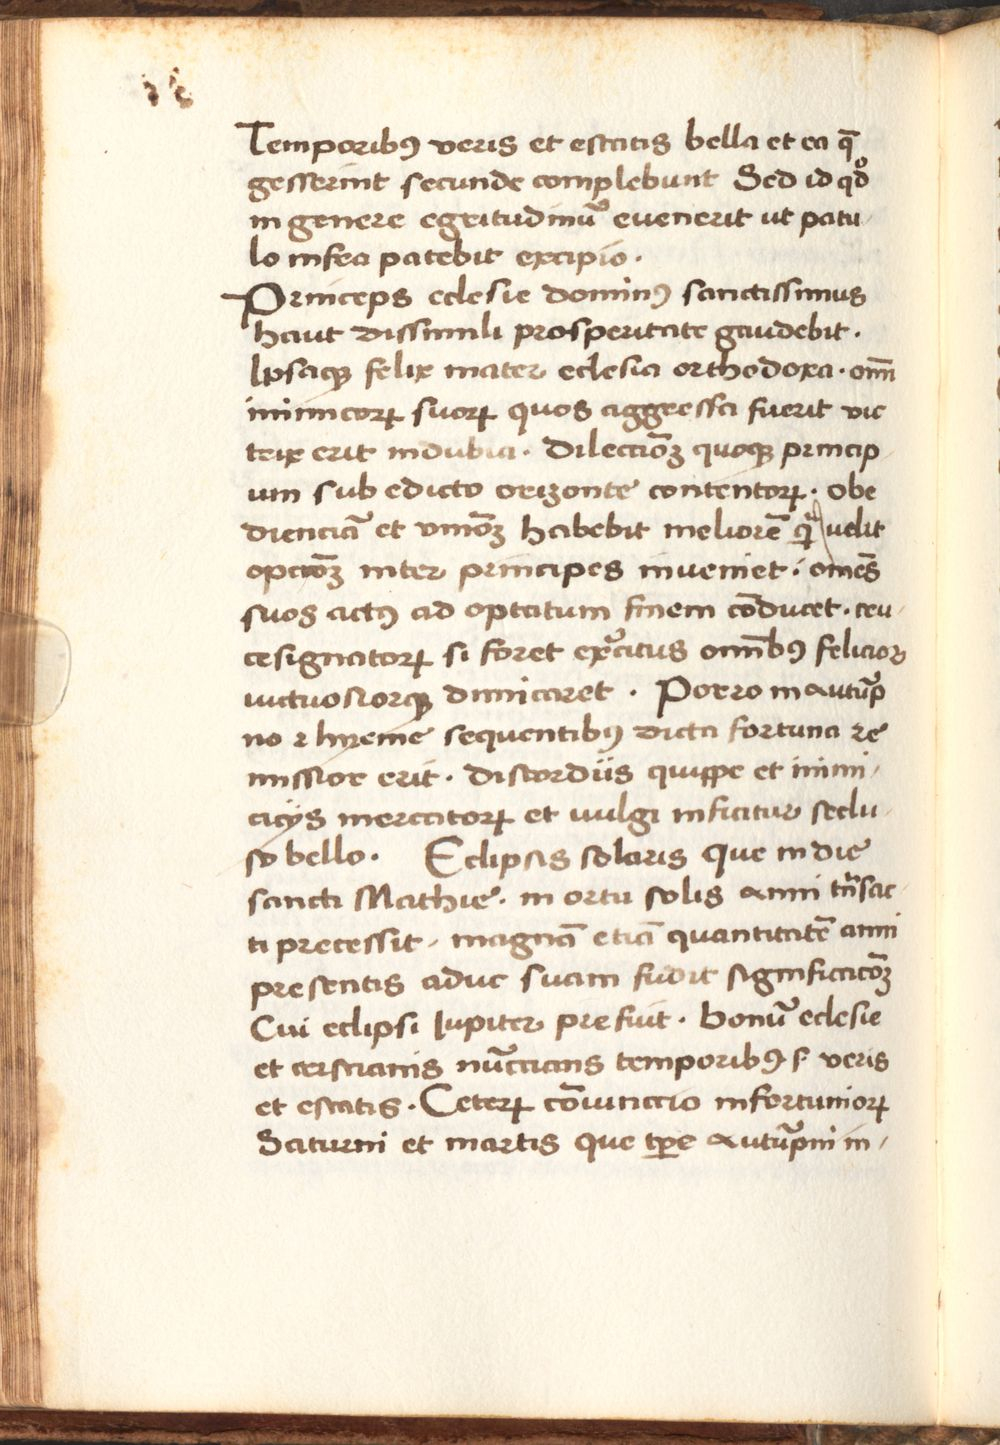 Temporibꝰ veris et estatis bella et ea q̄
gesserint secunde complebunt Sed id qdͦ
in genere egritudinū evenerit ut pau
lo infra patebit excipio ·
Princeps eclesie dominꝰ sanctissimus
haut dissimili prosperitate gaudebit ·
Ipsaqꝫ felix mater eclesia orthodoxa · om̄
inimicorꝝ suorꝝ quos aggressa fuerit vic
trix erit indubia · Dilecciōꝫ quoqꝫ princip
um sub edicto orizonte contentorꝝ · obe
dienciā et vniōꝫ habebit meliorē qᷓ velit
opciōꝫ inter principes inveniet · om̄es
suos actꝰ ad optatum finem cōducet · cru
cesignatorꝝ si foret exᵉcitus om̄ibꝰ felicior
victuosiorqꝫ dimicaret · Porro in autūp
no ⁊ hyeme sequentibꝰ dicta fortuna re
missior erit · discordiis quippe et inimi
cicijs mercatorꝝ et vulgi inficitur seclu
so bello · Eclipsis solaris que in die
sancti Mathie · in ortu solis anni tᷓnsac
ti precessit · magnā etiā quantitatē anni
presentis aduc suam fudit significaciōꝫ
Cui eclipsi Iupiter prefuit · bonū eclesie
et cristianis nūccians temporibꝰ s veris
et estatis · Ceterꝝ cōiunctio infortuniorꝝ
Saturni et martis que tꝑe autūpni in